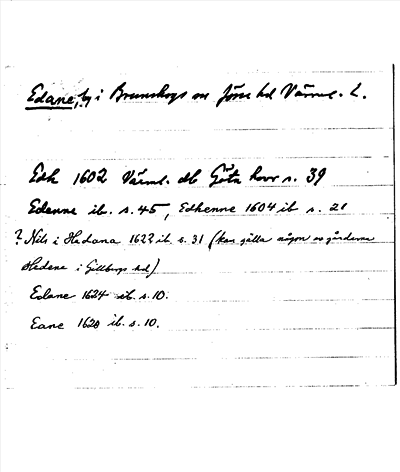 Edane, by i Brunskogs sn Jösse hd Värml. L.
Edh 1602 Värml. db Göta hovr s. 39
Edenne ib. s. 45, Edhenne 1604 ib s. 21
? Nils i Hedana 1622 ib. s. 31 (kan gälla någon av gårdarna
Hedene i Gillbergs hd)
Edane 1624 ib. s. 10.
Eane 1628 ib. s. 10.